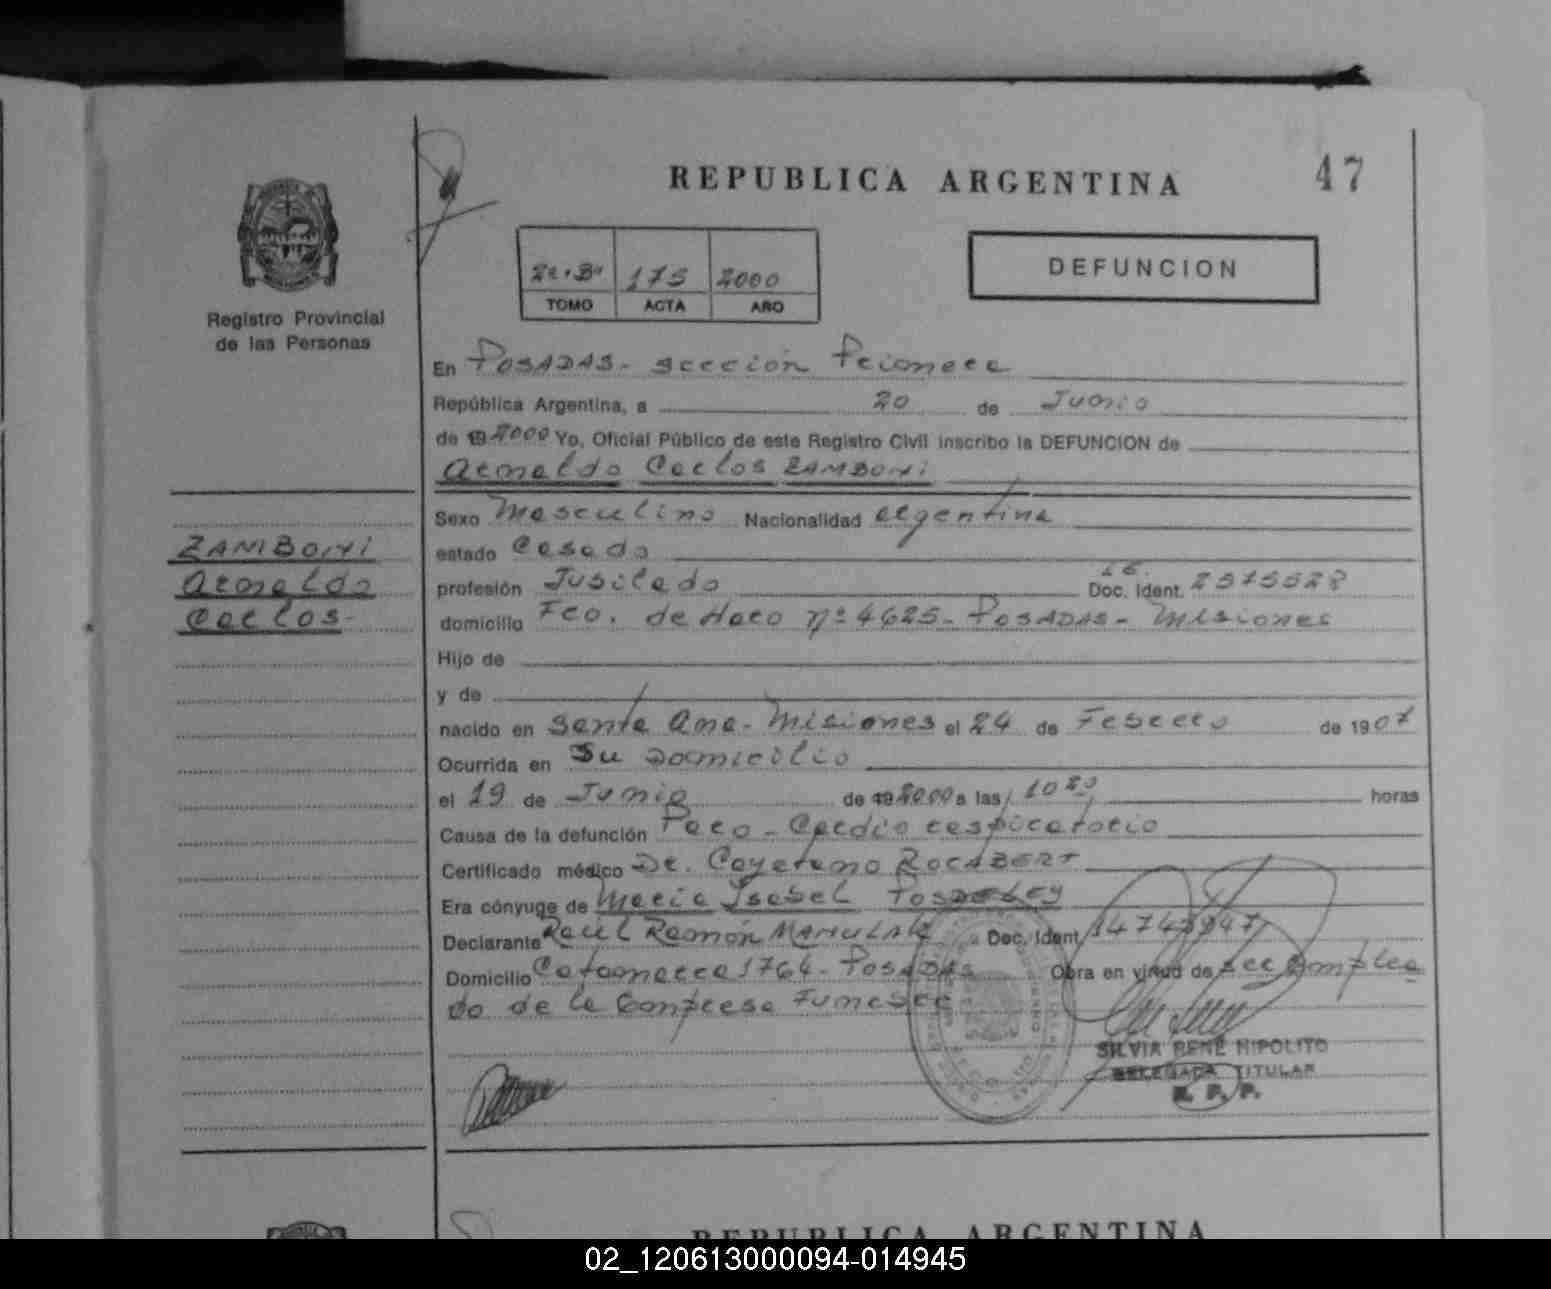 REPUBLICA ARGENTINA
47
Registro Provincial
de las Personas
175 2000
TOMO ACTA AÑO
DEFUNCION
En POSADAS - sección Primera
República Argentina, a 20 de Junio
de 19 2000 Yo, Oficial Público de este Registro Civil inscribo la DEFUNCION de
Arnaldo Carlos ZAMBONI
ZAMBONI
Arnaldo
Carlos -
Sexo Masculino Nacionalidad argentina
estado Casado
profesión Jubilado Doc. Ident. L.E. 2575528
domicilio Fco. de Haro nº 4625 - POSADAS - Misiones
Hijo de
y de
nacido en Santa Ana - Misiones el 24 de Febrero de 1907
Ocurrida en Su Domicilio
el 19 de Junio de 19 2000 a las 10 20 horas
Causa de la defunción Paro - Cardio respiratorio
Certificado médico Dr. Cayetano ROCABERT
Era cónyuge de María Isabel
Declarante Raúl Ramón Doc. Ident
Domicilio Catamarca 1764 - POSADAS Obra en virtud de ser Emplea
do de la Empresa Funebre
SILVIA RENE HIPOLITO
DELEGADA TITULAR
R. P. P.
REPUBLICA ARGENTINA
02_120613000094-014945